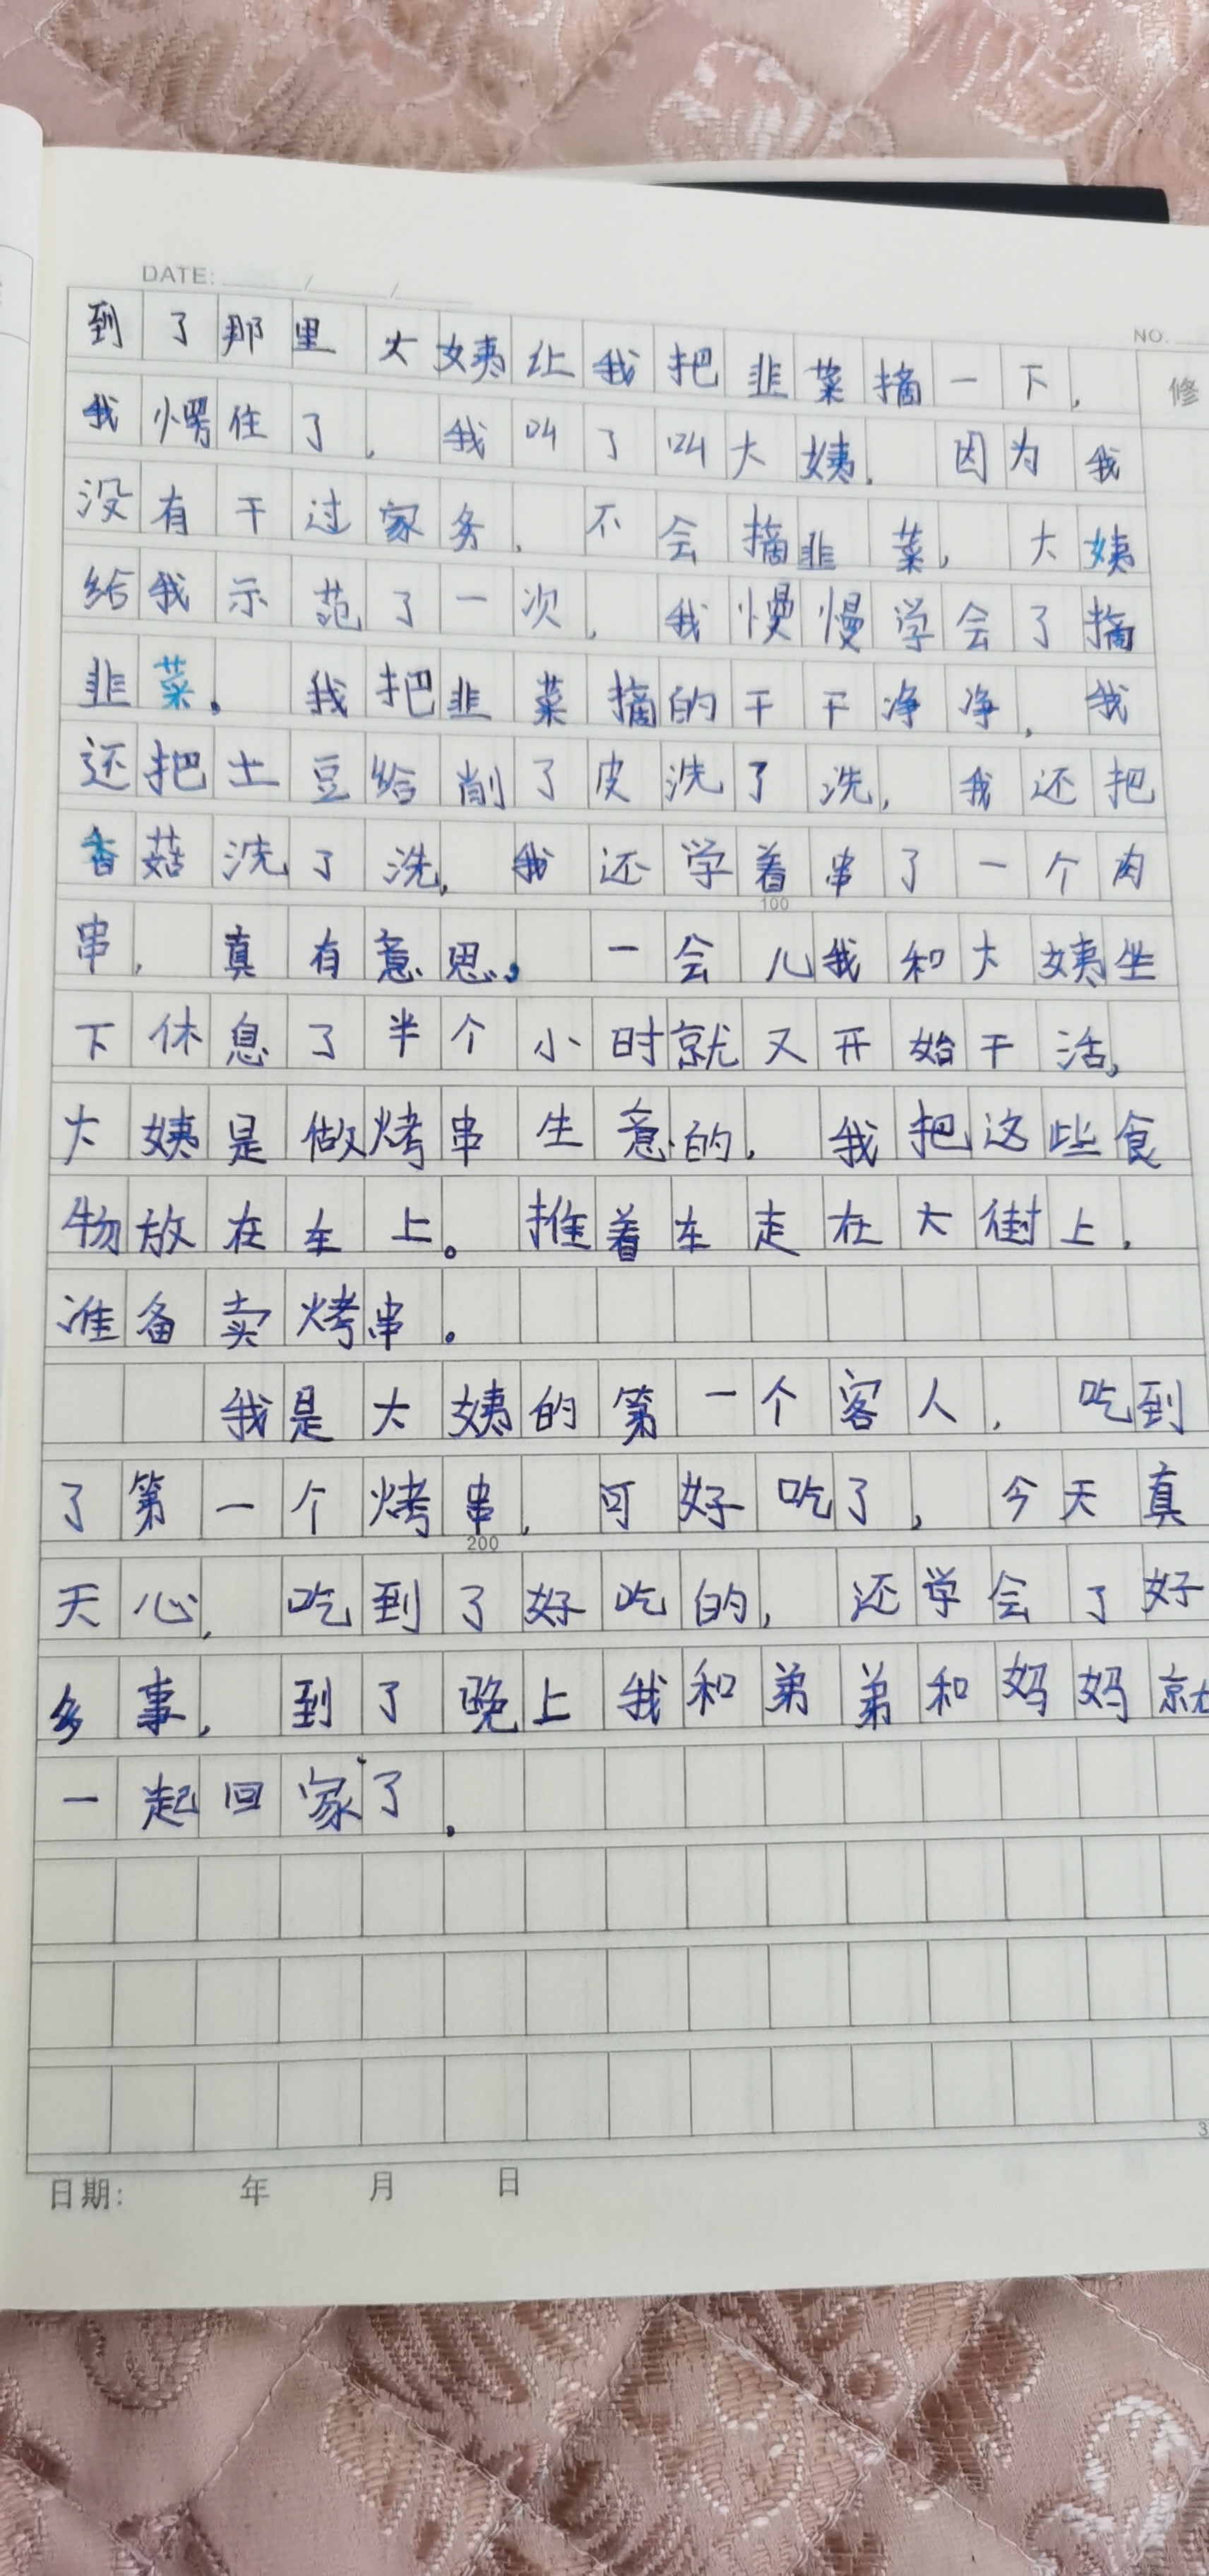 DATE: / /
NO.
到了那里大姨让我把韭菜摘一下,
修
我愣住了,我叫了叫大姨,因为我
没有干过家务,不会摘韭菜,大姨
给我示范了一次,我慢慢学会了摘
韭菜。我把韭菜摘的干干净净,我
还把土豆给削了皮洗了洗,我还把
香菇洗了洗,我还学着串了一个肉
100
串,真有意思。一会儿我和大姨坐
下休息了半个小时就又开始干活,
大姨是做烤串生意的,我把这些食
物放在车上。推着车走在大街上,
准备卖烤串。
我是大姨的第一个客人,吃到
了第一个烤串,可好吃了,今天真
200
天心,吃到了好吃的,还学会了好
多事,到了晚上我和弟弟和妈妈就
一起回家了。
3
日期: 年 月 日